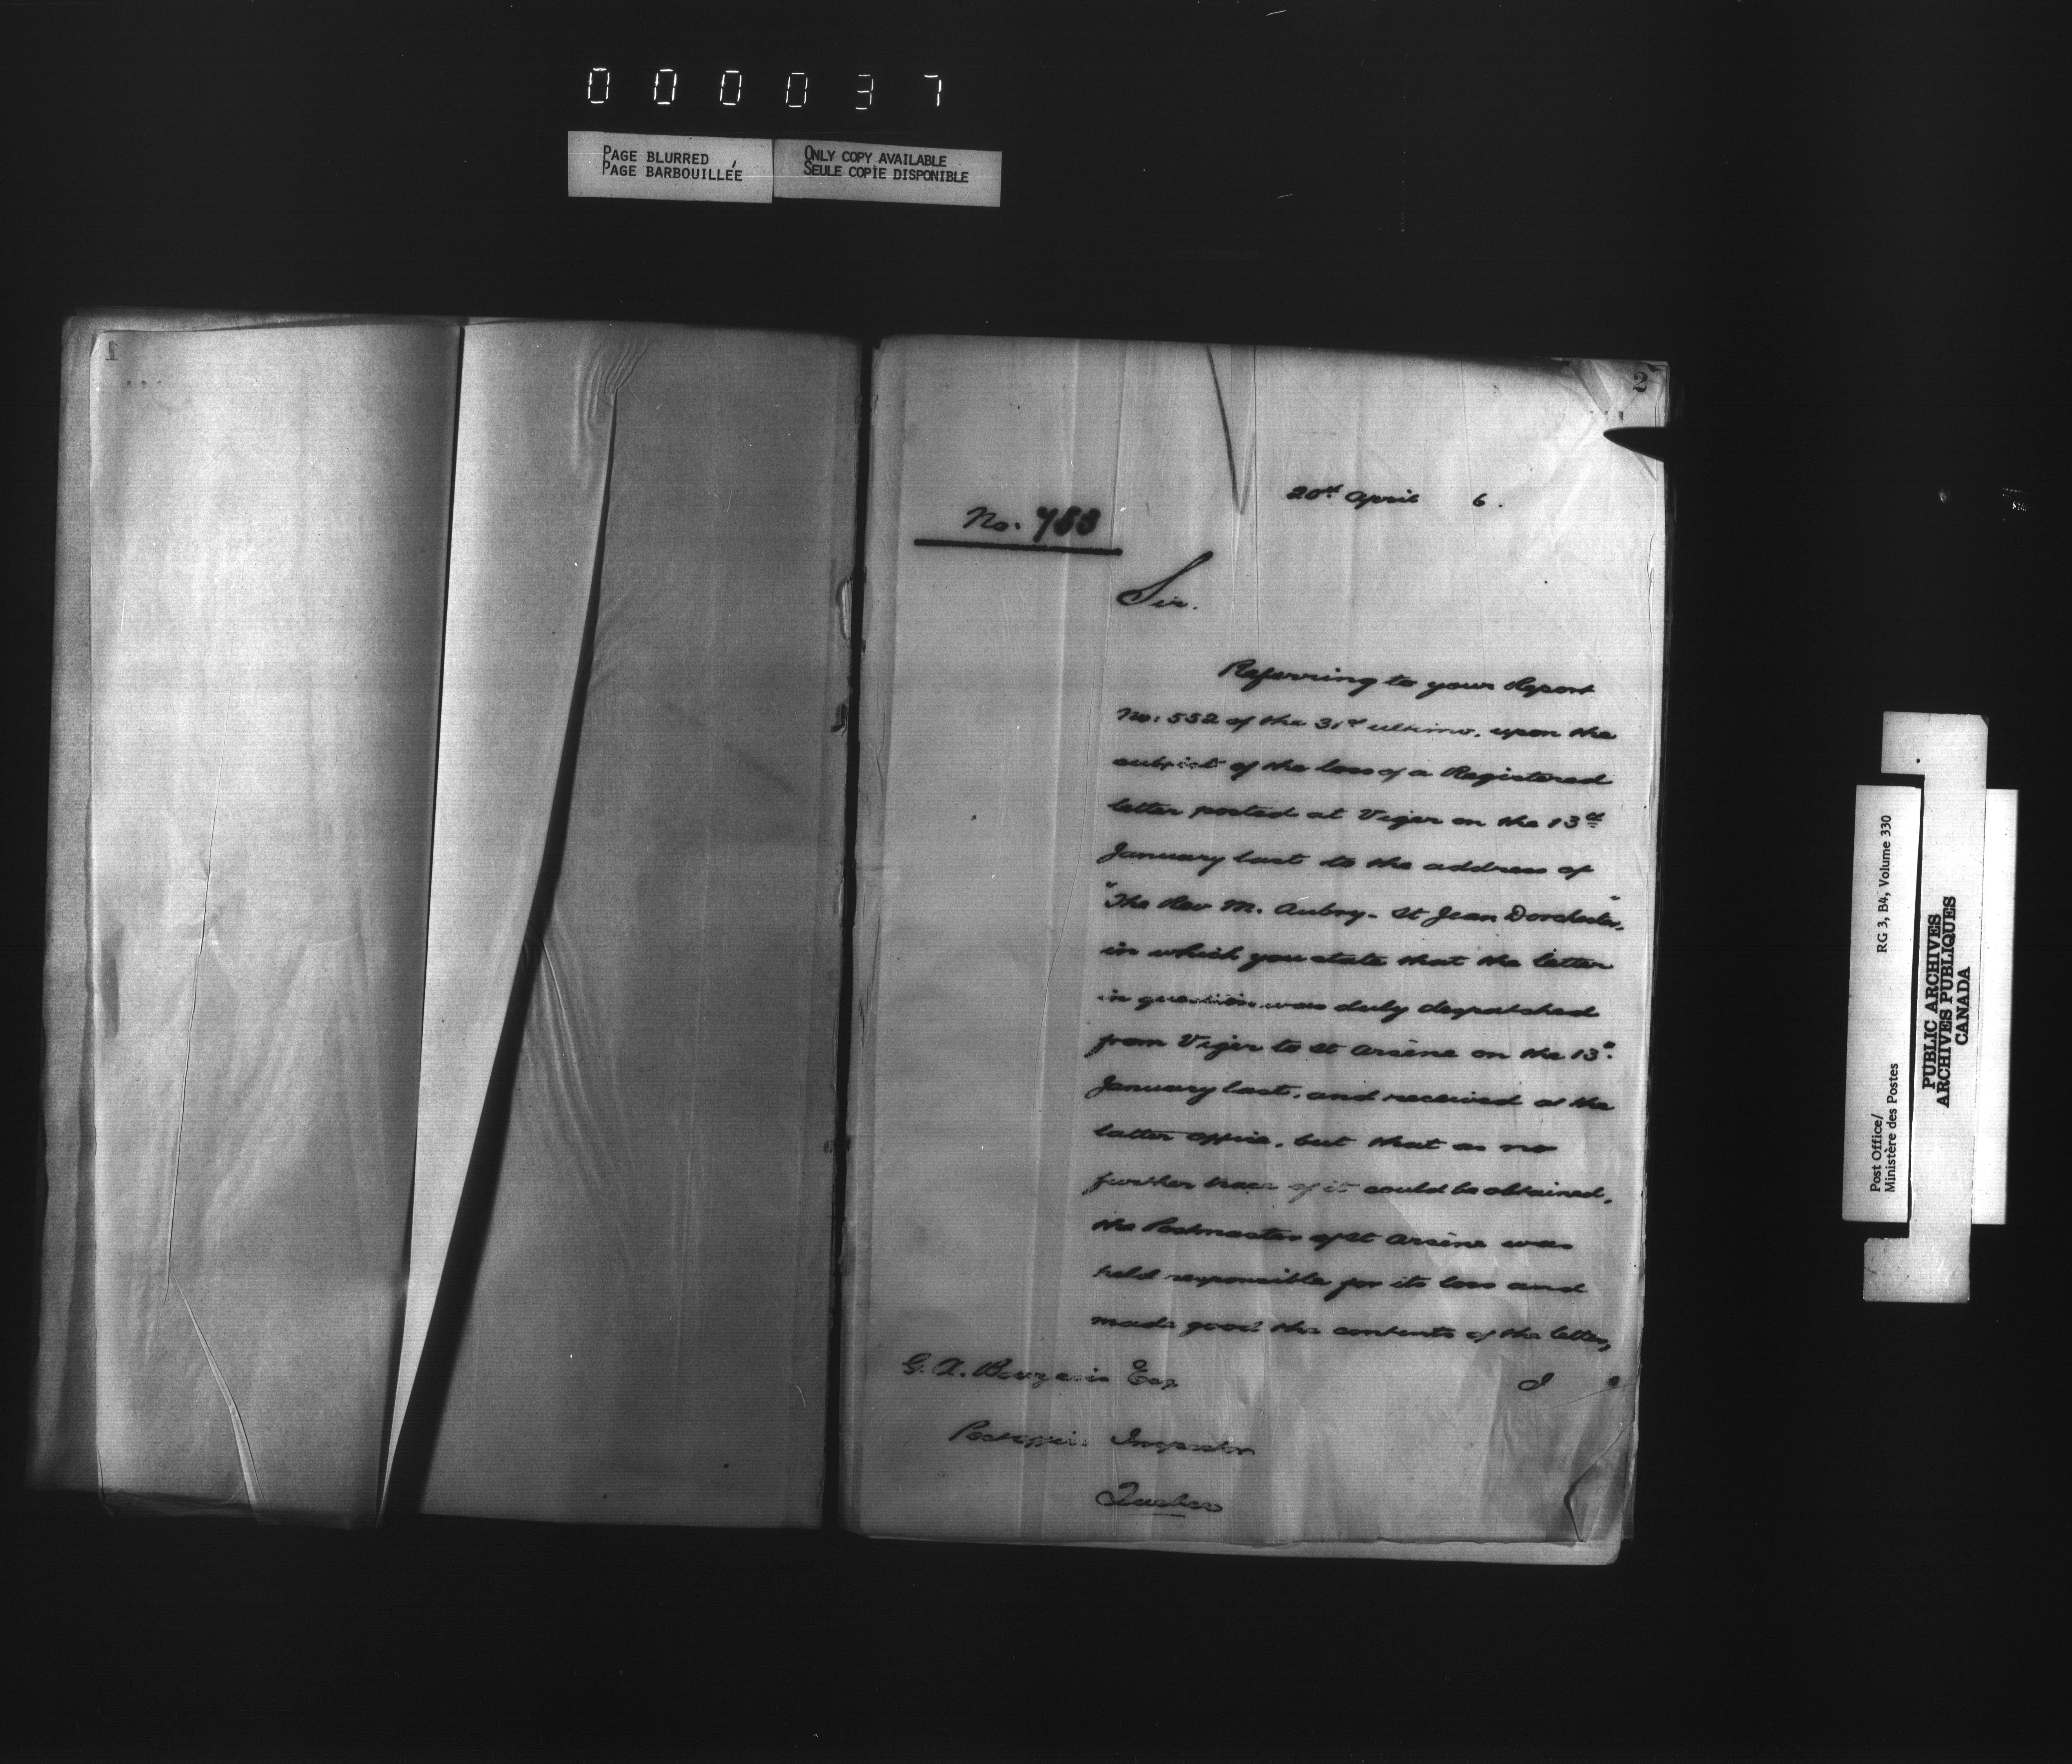 000037
PAGE BLURRED
PAGE BARBOUILLÉE
ONLY COPY AVAILABLE
SEULE COPIE DISPONIBLE
1
2
20th April 6.
No. 753
Sir.
Referring to your Report
No: 552 of the 31st ultimo, upon the
subject of the loss of a Registered
letter posted at Viger on the 13th
January last to the address of
"The Rev M. Aubry - St Jean Dorchester,"
in which you state that the letter
in question was duly despatched
from Viger to St Arsène on the 13th
January last, and received at the
latter office, but that as no
further trace of it could be obtained,
the Postmaster of St Arsène was
held responsible for its loss and
made good the contents of the letter,
I
G. A. Bourgeois Esq
Post office Inspector
Quebec
Post Office/
Ministère des Postes
RG 3, B4, Volume 330
PUBLIC ARCHIVES
ARCHIVES PUBLIQUES
CANADA